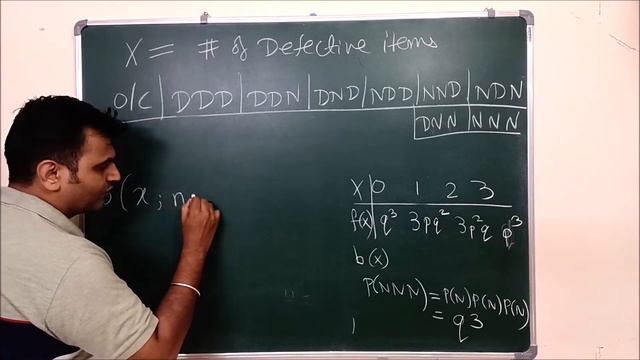 X = # of Defective items
O/C | DDD | DDN | DND | NDD | NND | NDN
DNN | NNN
b(x; n
X | 0 1 2 3
f(x) | q³ 3pq² 3p²q p³
b(x)
P(NNN) = P(N)P(N)P(N)
= q3